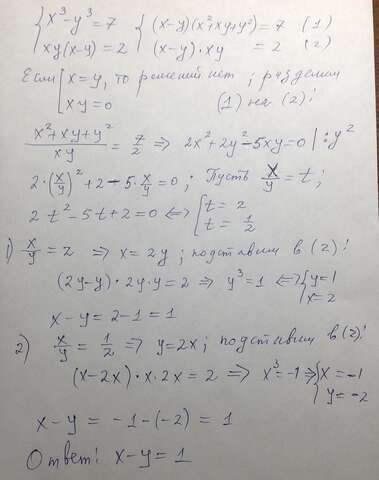 { x³-y³=7   { (x-y)(x²+xy+y²)=7 (1)
{ xy(x-y)=2   { (x-y)·xy = 2 (2)
Если [ x=y, то решений нет; разделим
[ xy=0   (1) на (2)!
(x²+xy+y²)/(xy) = 7/2 => 2x²+2y²-5xy=0 |:y²
2·(x/y)²+2-5·x/y=0; Пусть x/y=t;
2t²-5t+2=0 <=> [ t=2
[ t=1/2
1) x/y=2 => x=2y; подставим в (2)!
(2y-y)·2y·y=2 => y³=1 <=> { y=1
{ x=2
x-y=2-1=1
2) x/y=1/2 => y=2x; подставим в (2)!
(x-2x)·x·2x=2 => x³=-1 => { x=-1
{ y=-2
x-y=-1-(-2)=1
Ответ! x-y=1